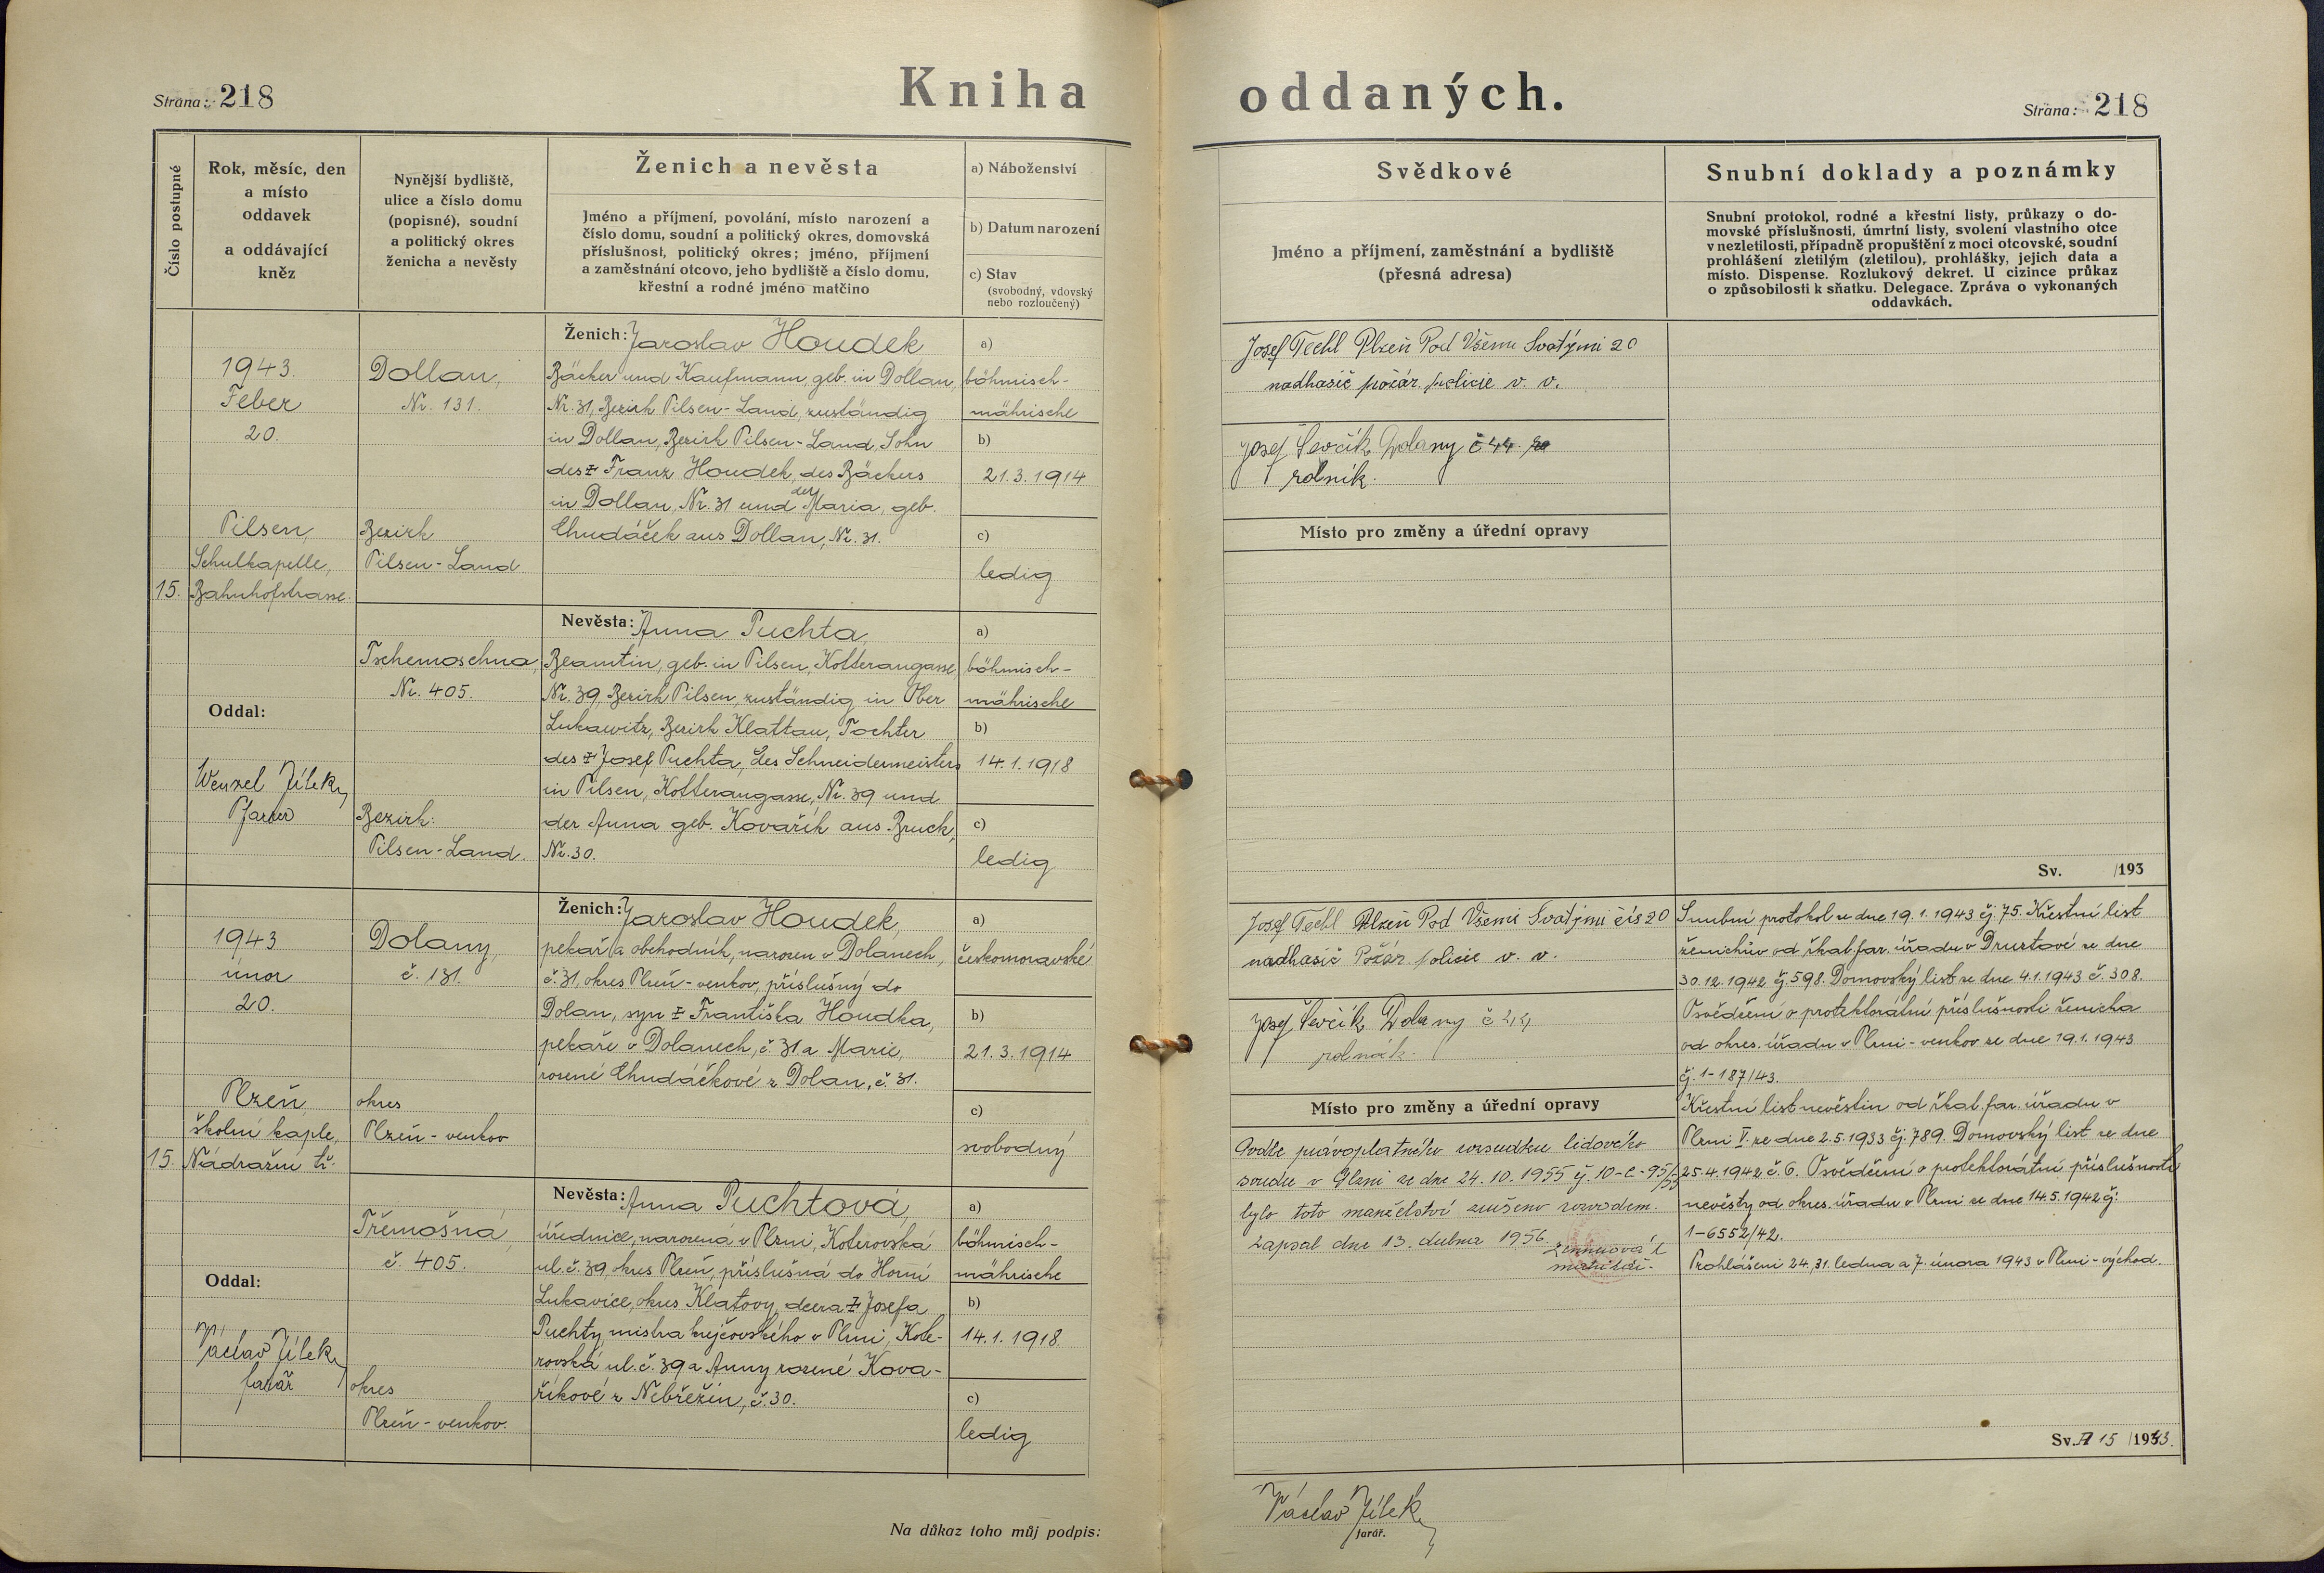 Strana: 218
Kniha oddaných.
Strana: 218
Číslo postupné
Rok, měsíc, den
a místo
oddavek
a oddávající
kněz
Nynější bydliště,
ulice a číslo domu
(popisné), soudní
a politický okres
ženicha a nevěsty
Ženich a nevěsta
Jméno a příjmení, povolání, místo narození a
číslo domu, soudní a politický okres, domovská
příslušnost, politický okres; jméno, příjmení
a zaměstnání otcovo, jeho bydliště a číslo domu,
křestní a rodné jméno matčino
a) Náboženství
b) Datum narození
c) Stav
(svobodný, vdovský
nebo rozloučený)
Svědkové
Jméno a příjmení, zaměstnání a bydliště
(přesná adresa)
Snubní doklady a poznámky
Snubní protokol, rodné a křestní listy, průkazy o do-
movské příslušnosti, úmrtní listy, svolení vlastního otce
v nezletilosti, případně propuštění z moci otcovské, soudní
prohlášení zletilým (zletilou), prohlášky, jejich data a
místo. Dispense. Rozlukový dekret. U cizince průkaz
o způsobilosti k sňatku. Delegace. Zpráva o vykonaných
oddavkách.
15.
1943.
Feber
20.
Pilsen,
Schulkapelle,
Bahnhofstrasse.
Oddal:
Wenzel Jílek,
Pfarrer
Dollan,
Nr. 131.
Bezirk
Pilsen-Land
Tschemoschna,
Nr. 405.
Bezirk:
Pilsen-Land.
Ženich: Jaroslav Houdek
Bäcker und Kaufmann, geb. in Dollan,
Nr. 31, Bezirk Pilsen-Land, zuständig
in Dollan, Bezirk Pilsen-Land, Sohn
des ‡ Franz Houdek, des Bäckers
in Dollan, Nr. 31 und der Maria, geb.
Chudáček aus Dollan, Nr. 31.
a)
böhmisch-
mährische
b)
21.3.1914
c)
ledig
Nevěsta: Anna Puchta,
Beamtin, geb. in Pilsen, Kotteraugasse,
Nr. 39, Bezirk Pilsen, zuständig in Ober
Lukawitz, Bezirk Klattau, Tochter
des ‡ Josef Puchta, des Schneidermeisters
in Pilsen, Kotteraugasse, Nr. 39 und
der Anna geb. Kovařík aus Bruck,
Nr. 30.
a)
böhmisch-
mährische
b)
14.1.1918
c)
ledig
Josef Techl Plzeň Pod Všemi Svatými 20
nadhasič požár. policie v. v.
Josef Ševčík Dolany č 44.
rolník.
Místo pro změny a úřední opravy
Sv. /193
15.
1943
únor
20.
Plzeň
školní kaple,
Nádražní tř.
Oddal:
Václav Jílek,
farář
Dolany,
č. 131.
okres
Plzeň-venkov
Třemošná,
č. 405.
okres
Plzeň-venkov.
Ženich: Jaroslav Houdek,
pekař a obchodník, narozen v Dolanech,
č. 31, okres Plzeň-venkov, příslušný do
Dolan, syn ‡ Františka Houdka,
pekaře v Dolanech, č. 31 a Marie,
rozené Chudáčkové z Dolan, č. 31.
a)
českomoravské
b)
21.3.1914
c)
svobodný
Nevěsta: Anna Puchtová,
úřednice, narozená v Plzni, Koterovská
ul. č. 39, okres Plzeň, příslušná do Horní
Lukavice, okres Klatovy, dcera ‡ Josefa
Puchty, mistra krejčovského v Plzni, Kote-
rovská ul. č. 39 a Anny rozené Kova-
říkové z Nebřežin, č. 30.
a)
böhmisch-
mährische
b)
14.1.1918.
c)
ledig
Josef Techl Plzeň Pod Všemi Svatými čís 20
nadhasič Požár. policie v. v.
Josef Ševčík Dolany č 44
rolník.
Místo pro změny a úřední opravy
Podle právoplatného rozsudku lidového
soudu v Plzni ze dne 24.10.1955 čj. 10-C-95/55
bylo toto manželství zrušeno rozvodem.
Zapsal dne 13. dubna 1956.
Snubní protokol ze dne 19.1.1943 čj. 75. Křestní list
ženichův od řkat. far. úřadu v Druztové ze dne
30.12.1942 čj. 598. Domovský list ze dne 4.1.1943 č. 308.
Osvědčení o protektorátní příslušnosti ženicha
od okres. úřadu v Plzni-venkov ze dne 19.1.1943
čj. 1-187/43.
Křestní list nevěstin od řkat. far. úřadu v
Plzni V. ze dne 2.5.1933 čj. 789. Domovský list ze dne
25.4.1942 č. 6. Osvědčení o protektorátní příslušnosti
nevěsty od okres. úřadu v Plzni ze dne 14.5.1942 čj.
1-6552/42.
Prohlášeni 24., 31. ledna a 7. února 1943 v Plzni-východ.
Sv. A 15 /1943.
Na důkaz toho můj podpis:
Václav Jílek,
farář.